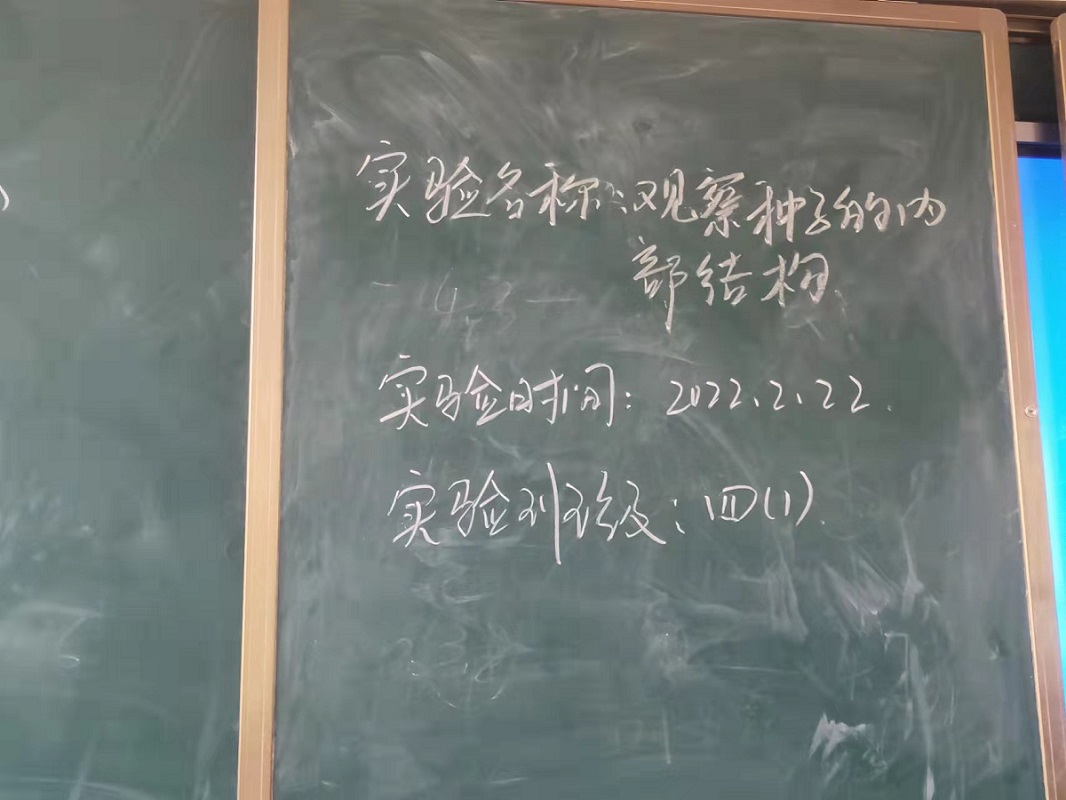 实验名称:观察种子的内
部结构.
实验时间: 2022.2.22.
实验班级: 四(1).